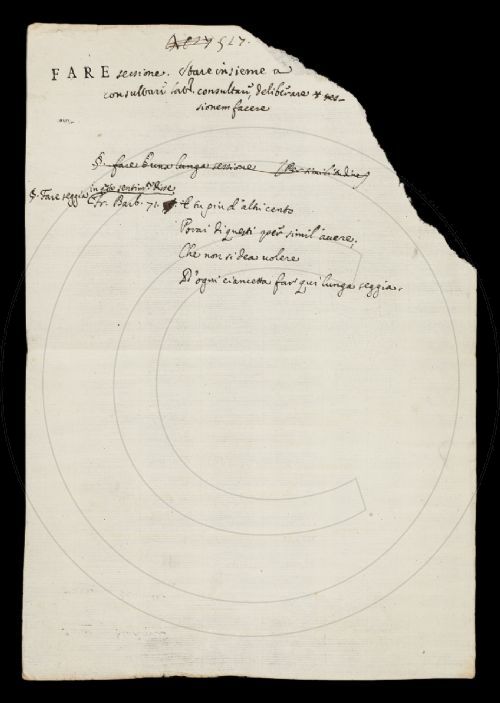 527.
FARE sessione. Stare insieme a
consultare. lat. consultare, deliberare
sionem facere
§. fare una lunga sessione (Per similitudine)
§. Fare seggia in questo sentim.to disse
Fr. Barb. 71. E tu piu d'altri cento
Porai di questi per simil' avere,
Che non si dea volere
D'ogni ciancetta far qui lunga seggia.